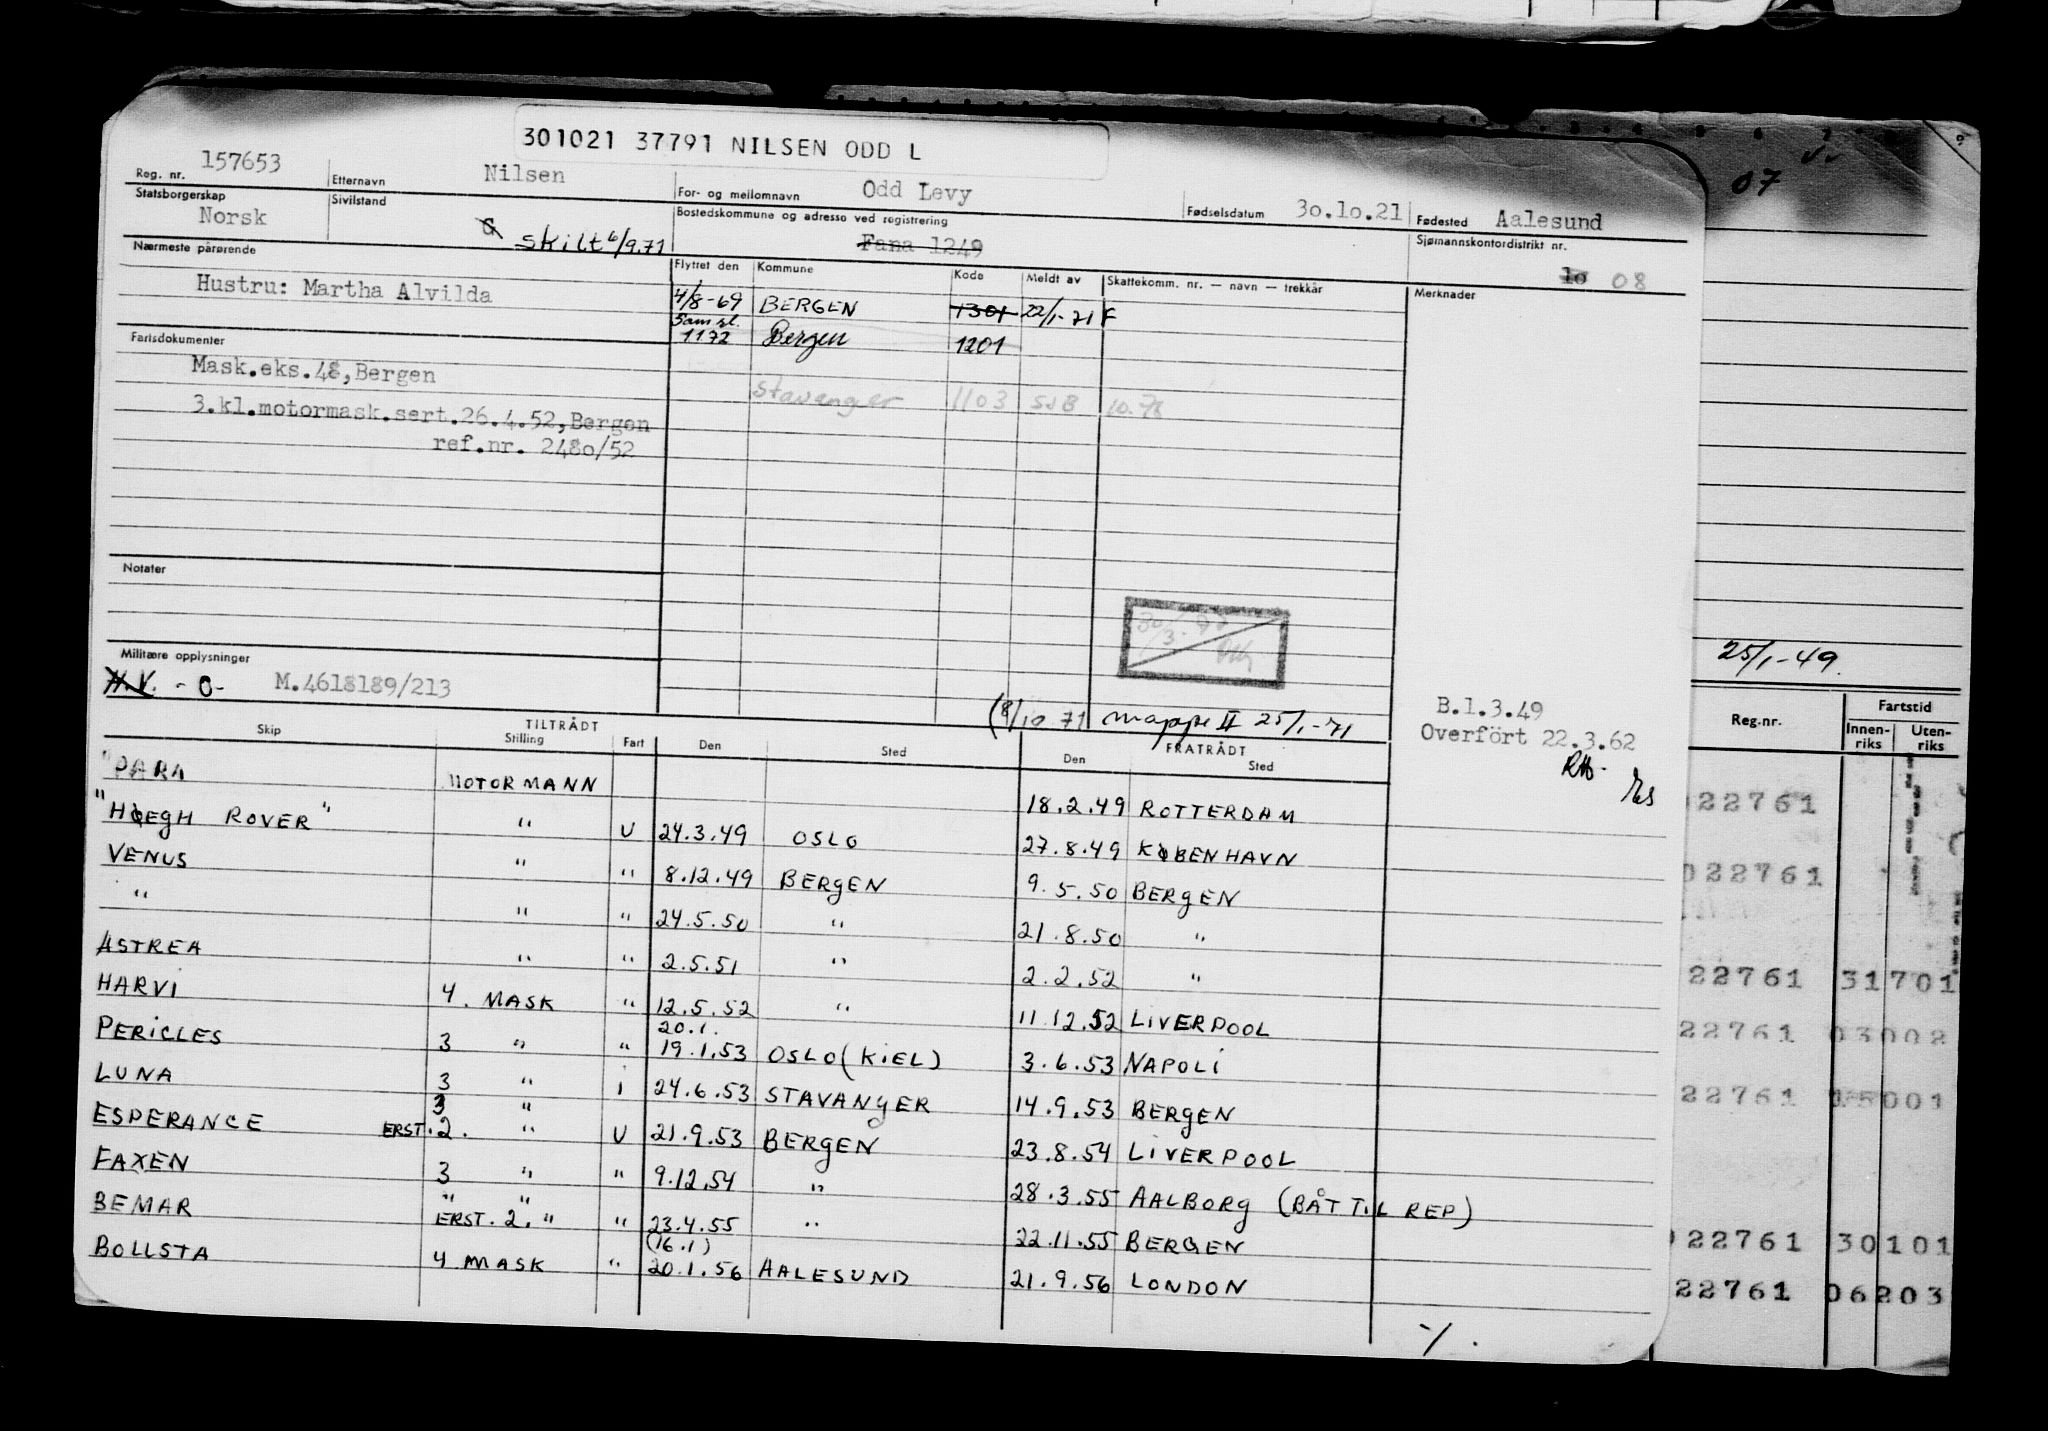 301021 37791 NILSEN ODD L
Reg. nr. 157653 Etternavn Nilsen For- og mellomnavn Odd Levy Fødselsdatum 30.10.21 Fødested Aalesund
Statsborgerskap Norsk Sivilstand G skilt 6/9.71 Bostedskommune og adresse ved registrering Fana 1249 Sjømannskontordistrikt nr. 10 08
Nærmeste pårørende Flyttet den Kommune Kode Meldt av Skattekomm. nr. — navn — trekkår Merknader
Hustru: Martha Alvilda 4/8-69 BERGEN 1301 22/1-71 F
Samsl. 1172 Bergen 1201
Fartsdokumenter
Mask.eks.48,Bergen
stavanger 1103 SJB 10.78
3.kl.motormask.sert.26.4.52,Bergen
ref.nr. 2480/52
Notater
Militære opplysninger
H.V. - O- M.4618189/213
(8/10 71 mappe II 25/1-71
B.1.3.49
Overfört 22.3.62
TILTRÅDT FRATRÅDT
Skip Stilling Fart Den Sted Den Sted
"PARA MOTORMANN 18.2.49 ROTTERDAM
"HØEGH ROVER" " U 24.3.49 OSLO 27.8.49 KØBENHAVN
VENUS " " 8.12.49 BERGEN 9.5.50 BERGEN
" " " 24.5.50 " 21.8.50 "
ASTREA " " 2.5.51 " 2.2.52 "
HARVI 4. MASK " 12.5.52 " 11.12.52 LIVERPOOL
20.1.
PERICLES 3 " " 19.1.53 OSLO (KIEL) 3.6.53 NAPOLI
LUNA 3 " i 24.6.53 STAVANGER 14.9.53 BERGEN
3 "
ESPERANCE ERST. 2. " U 21.9.53 BERGEN 23.8.54 LIVERPOOL
FAXEN 3 " " 9.12.54 " 28.3.55 AALBORG (BÅT TIL REP)
" "
BEMAR ERST. 2. " " 23.4.55 " 22.11.55 BERGEN
(16.1)
BOLLSTA 4 MASK " 20.1.56 AALESUND 21.9.56 LONDON
07
25/1-49.
Reg.nr. Fartstid
Innen-riks Uten-riks
022761
022761
22761 31701
22761 03002
22761 15001
022761 30101
22761 06203